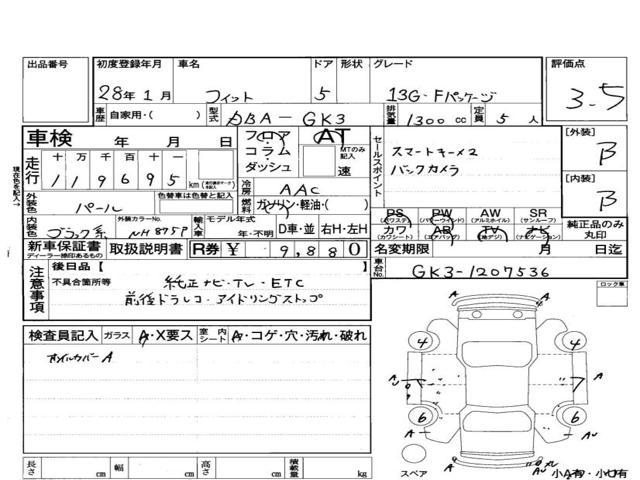 出品番号 初度登録年月 車名 ドア 形状 グレード 評価点
28年1月 フィット 5 13G・Fパッケージ 3.5
車歴 自家用・( ) 型式 DBA-GK3 排気量 1300 cc 定員 5 人
車検 年 月 日 フロア・コラム・ダッシュ AT MTのみ記入 速 セールスポイント [外装] B
走行 十 万 千 百 十 一 スマートキー×2
119695 km バックカメラ [内装] B
現在色を記入→
冷房 AAC
外装色 パール 色替車は色替と記入 燃料 ガソリン・軽油・( )
PS (パワステ) PW (パワーウインド) AW (アルミホイル) SR (サンルーフ) 純正品のみ丸印
内装色 ブラック系 外装カラーNo. NH875P 輸入車 モデル年式 年・不明 D車・並 右H・左H
カワ (カワシート) AB (エアバッグ) TV (地デジ) ナビ (ナビゲーション)
新車保証書 ディーラー捺印あるもの 取扱説明書 R券 ¥ 9,880 名変期限 月 日迄
注意事項 後日品【 】 車台No. GK3-1207536
不具合箇所等 純正ナビ・TV・ETC
前後ドラレコ・アイドリングストップ
ロック車
検査員記入 ガラス A・X要ス 室内シート A・コゲ・穴・汚れ・破れ
オイルカバーA
4 4
A A
6 6
A AU A AU
スペア A 小A有・小U有
長さ cm 幅 cm 高さ cm 積載量 kg